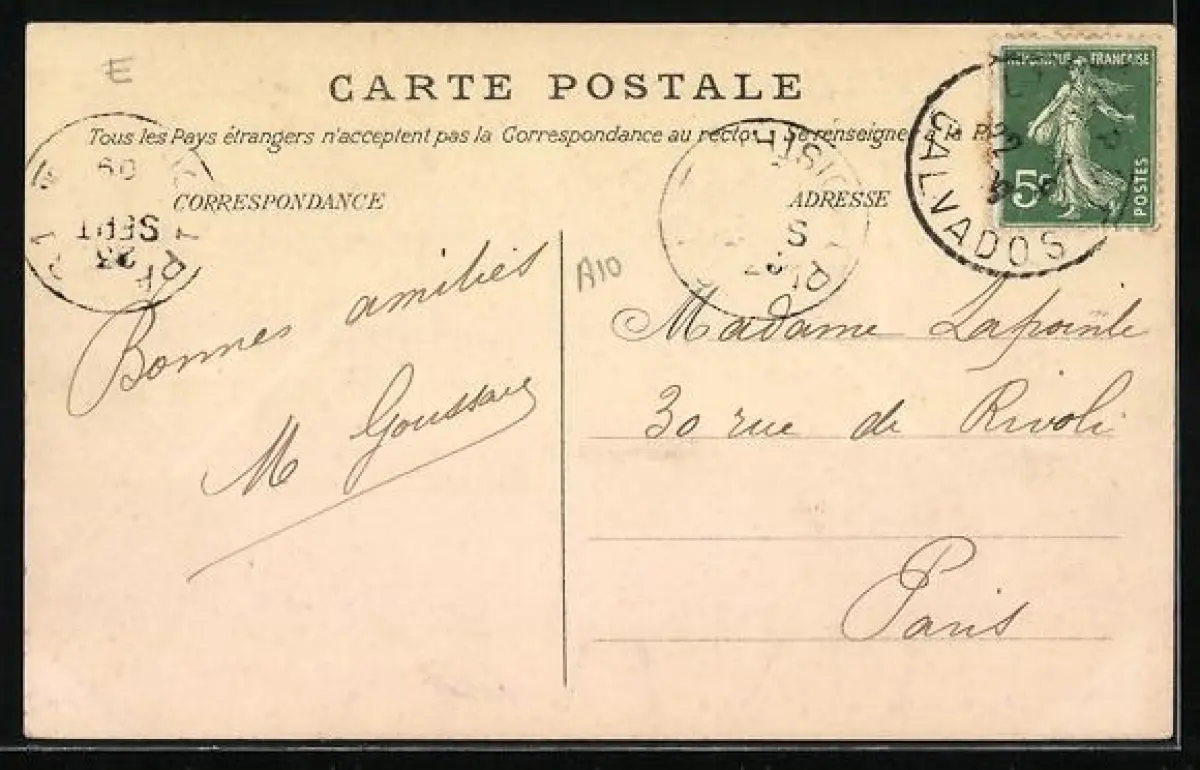 E
CARTE POSTALE
Tous les Pays étrangers n'acceptent pas la Correspondance au recto. Se renseigner à la P
CORRESPONDANCE
ADRESSE
RÉPUBLIQUE FRANÇAISE
5c
POSTES
CALVADOS
22
09
SEPT
23
PARIS
S
A10
Bonnes amitiés
M Goussard
Madame Lapointe
30 rue de Rivoli
Paris